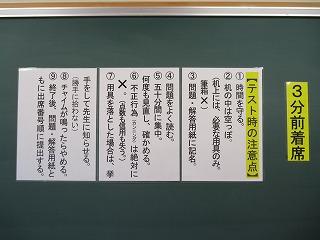 ３分前着席
【テスト時の注意点】
①時間を守る。
②机の中は空っぽ。
（机上には、必要な用具のみ。
筆箱×）
③問題・解答用紙に記名。
④問題をよく読む。
⑤五十分間に集中。
何度も見直し、確かめる。
⑥不正行為（カンニング）は絶対に
×。（点数も信用も失う。）
⑦用具を落とした場合は、挙
手をして先生に知らせる。
（勝手に拾わない）
⑧チャイムが鳴ったらやめる。
⑨終了後、問題・解答用紙と
もに出席番号順に提出する。